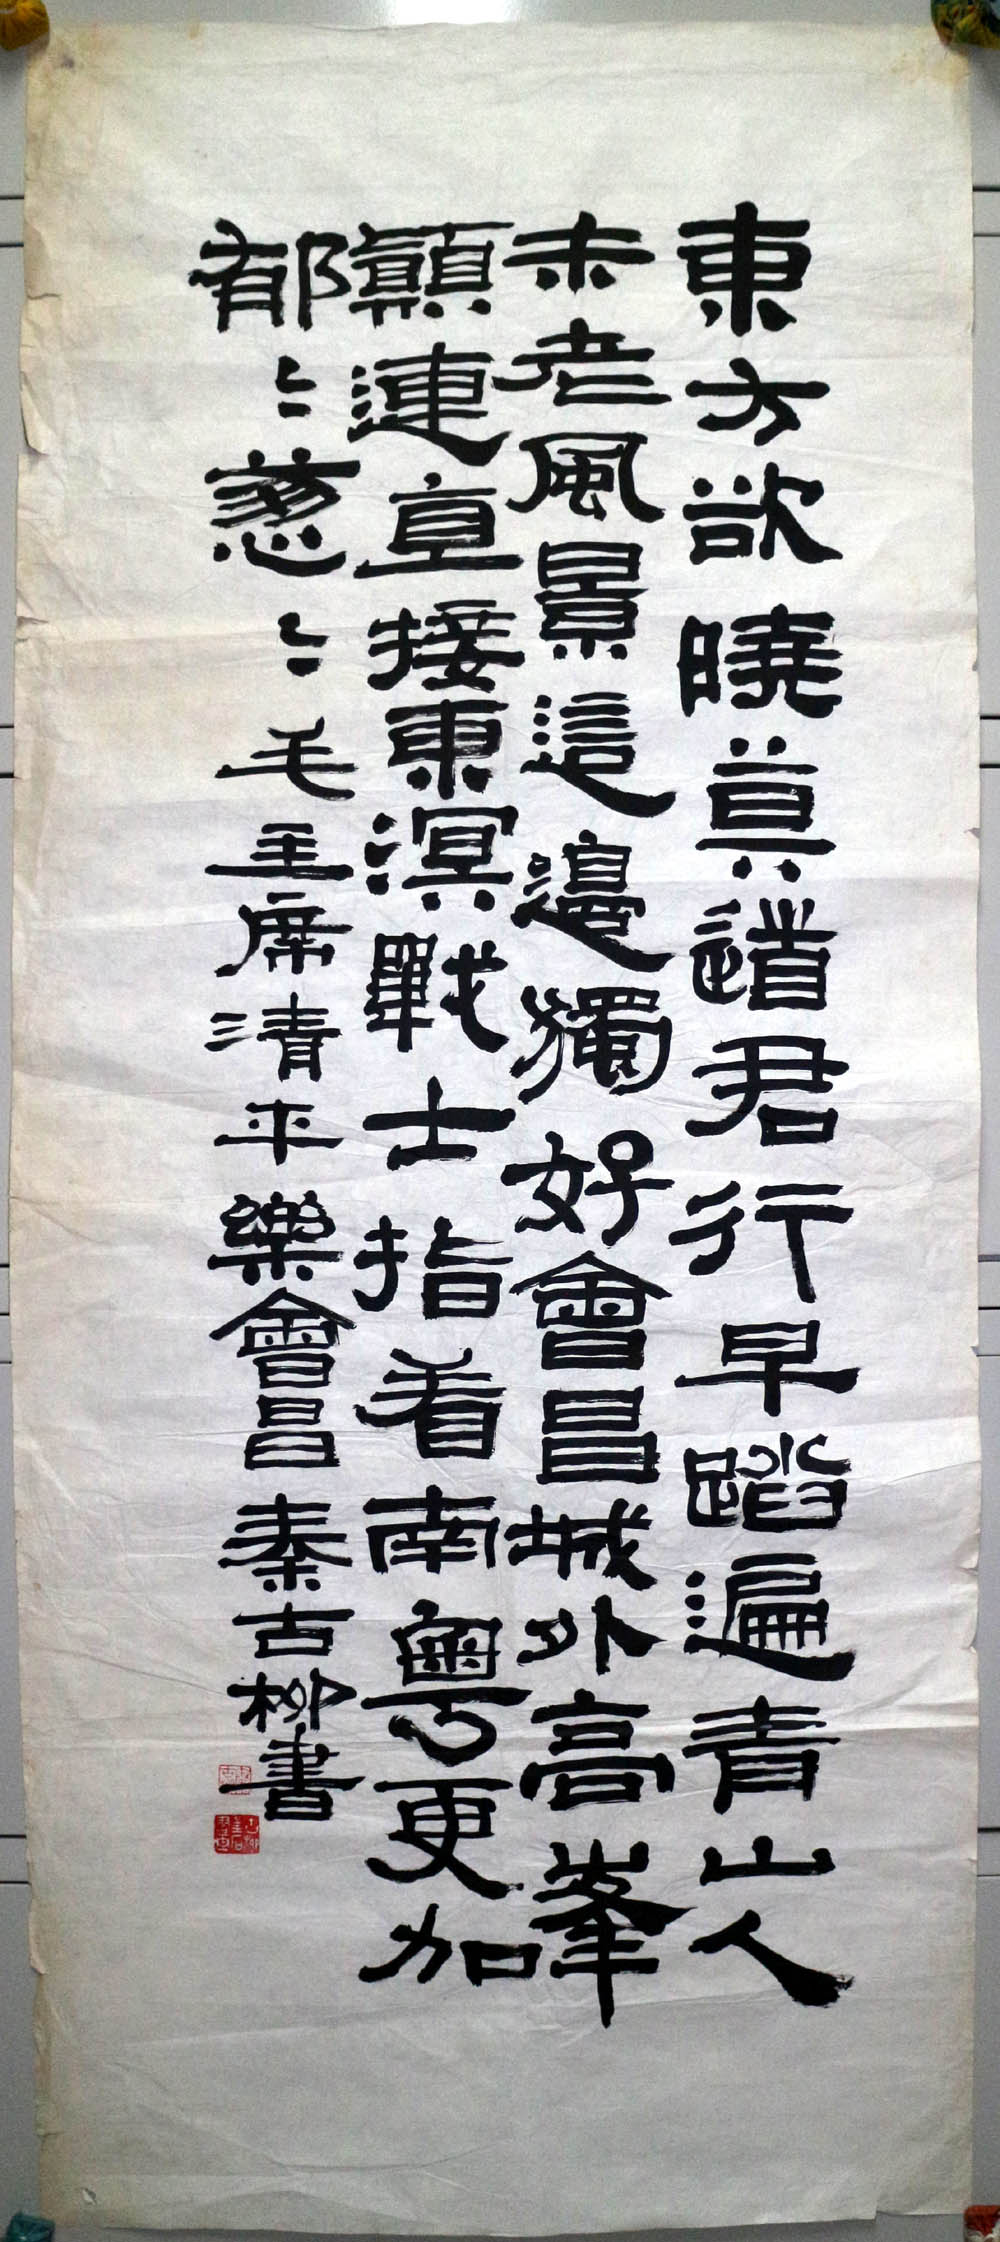 東方欲曉莫道君行早踏遍青山人
未老風景這邊獨好會昌城外高峯
顛連直接東溟戰士指看南粵更加
郁〻葱〻毛主席清平樂會昌秦古柳書